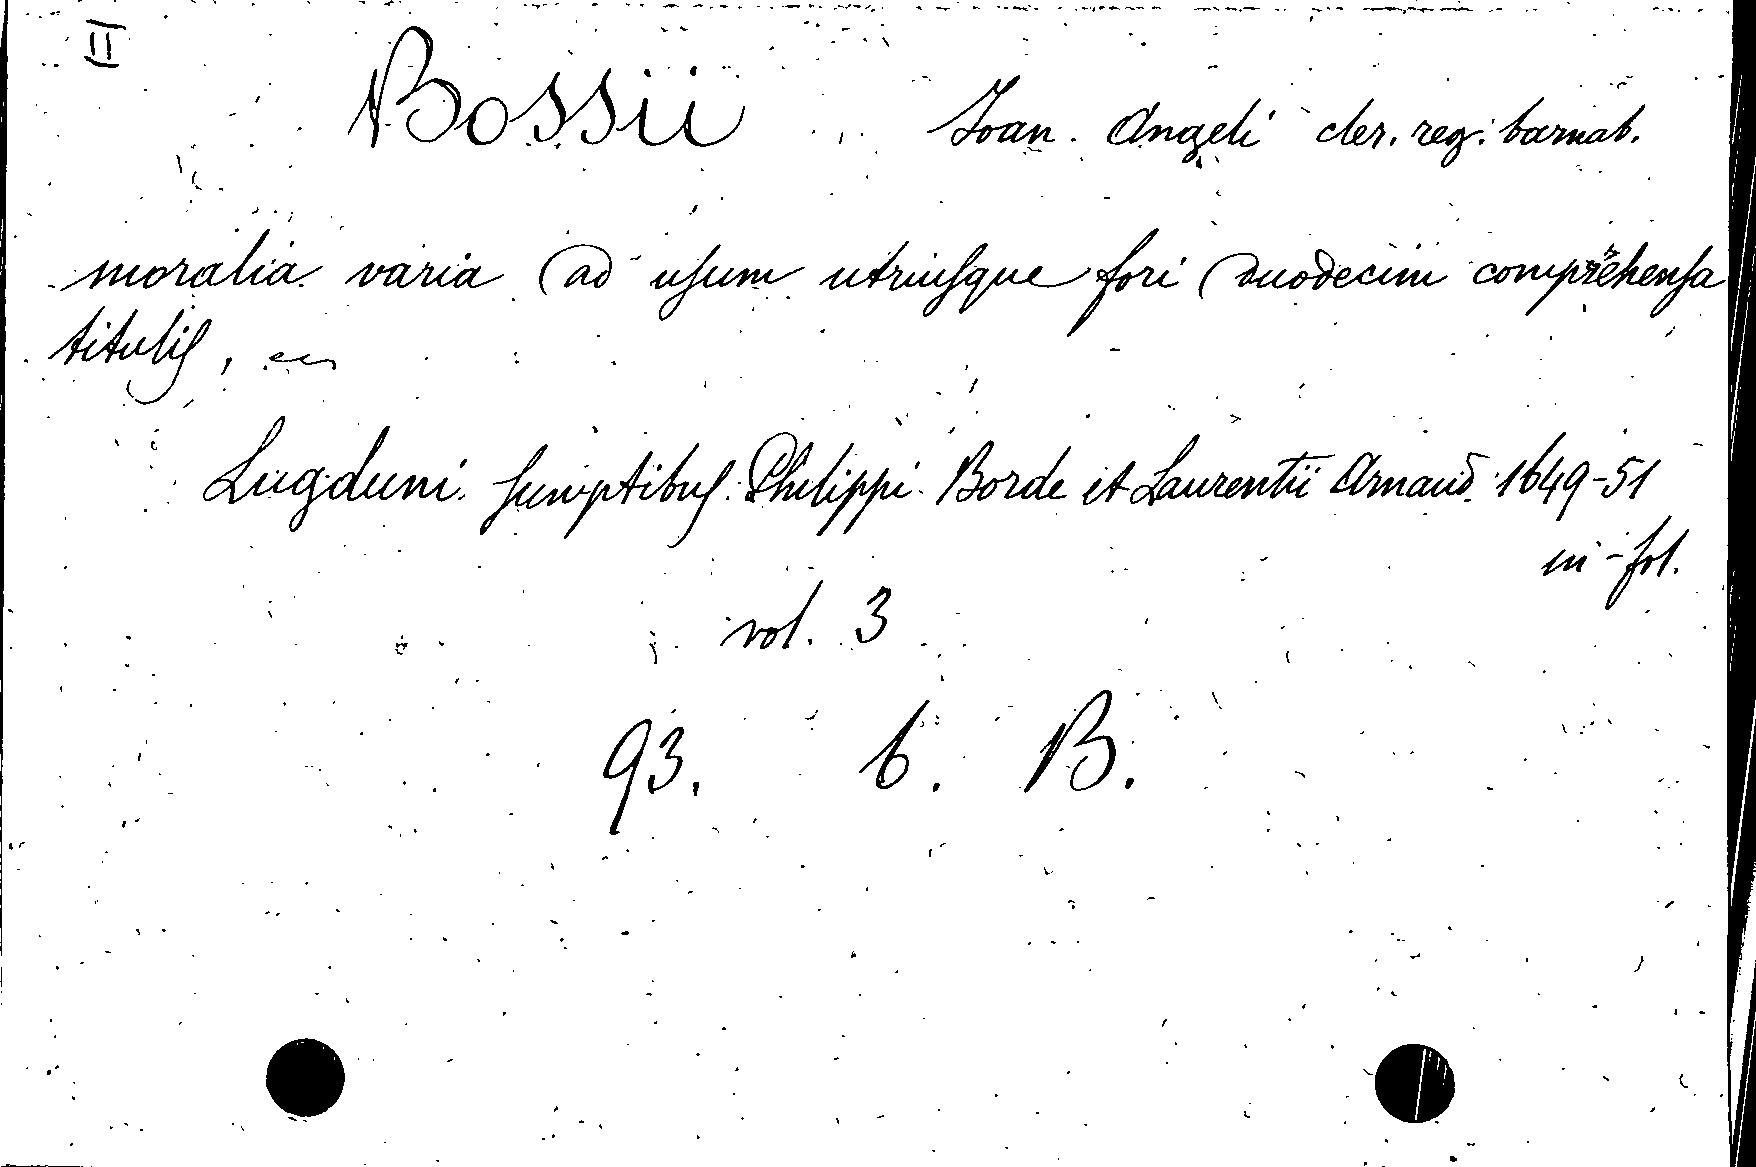 II
Bossii Joan. Angeli cler. reg. barnab.
moralia varia ad usum utriusque fori duodecim comprehensa
titulis,
Lugduni. sumptibus. Philippi. Borde et Laurentii Arnaud. 1649-51
in-fol.
vol. 3
93. b. B.